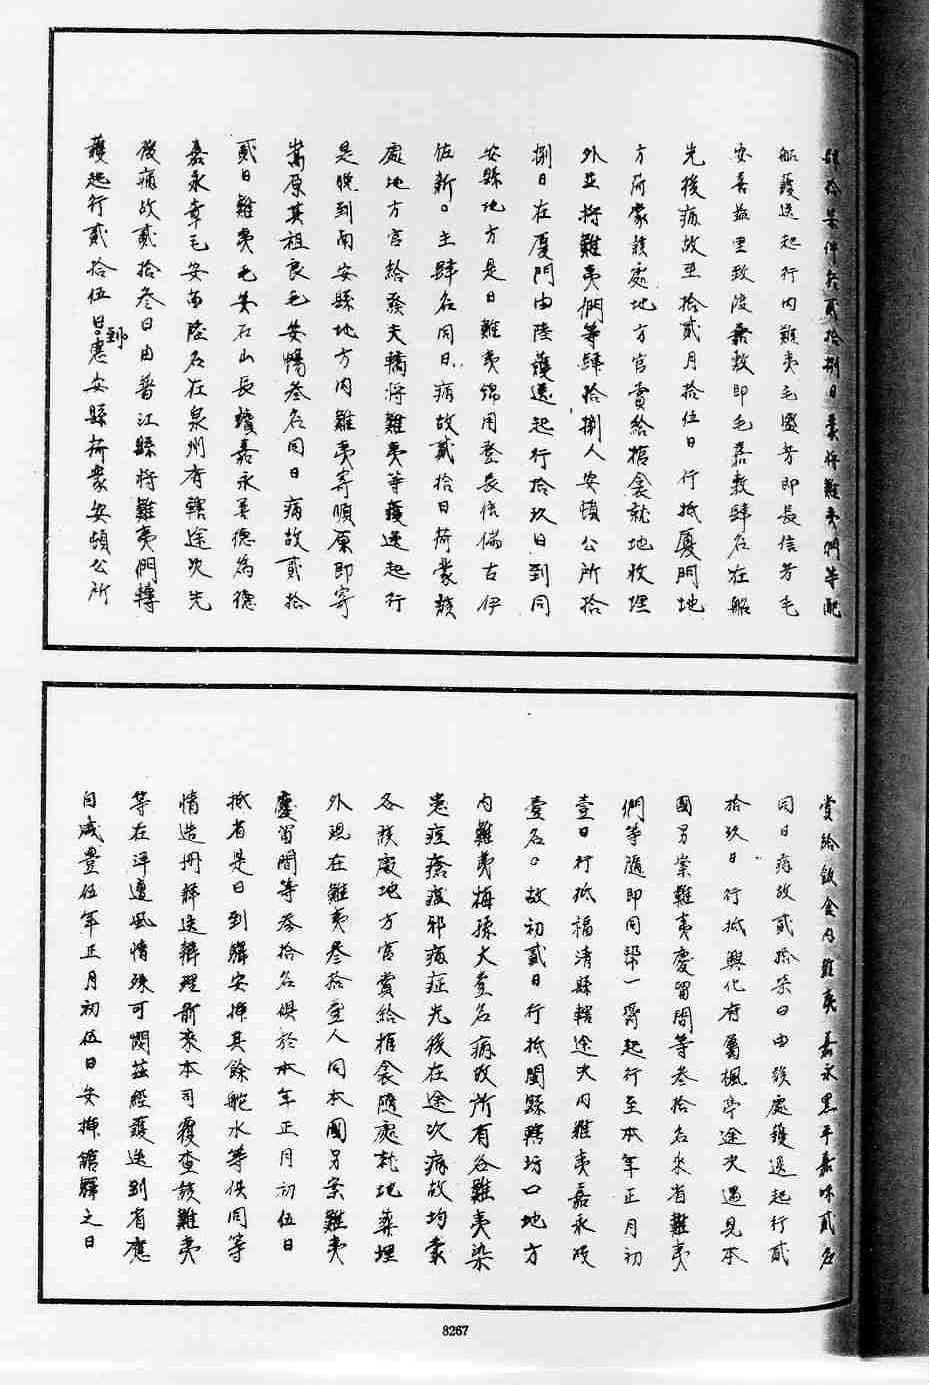 拾柒件於貳拾捌日蒙將難夷們等配
船護送起行內難夷毛盛芳即長信芳毛
安喜益里致渡嘉敷即毛嘉敷肆名在船
先後病故至拾貳月拾伍日行抵廈門地
方荷蒙該處地方官賞給棺衾就地收埋
外並將難夷們等肆拾捌人安頓公所拾
捌日在廈門由陸護送起行拾玖日到同
安縣地方是日難夷錦用登長信倫古伊
佐新。主肆名同日病故貳拾日荷蒙該
處地方官給發夫轎將難夷等護送起行
是晚到南安縣地方內難夷寄順原即寄
嵩原其祖良毛安暢叁名同日病故貳拾
貳日難夷毛安石山長瓊嘉永善德為德
嘉永幸毛安苗陸名在泉州府轄途次先
後病故貳拾叁日由晉江縣將難夷們轉
護起行貳拾伍日。到惠安縣荷蒙安頓公所
賞給飯食內難夷嘉永思平嘉味貳名
同日病故貳拾柒日由該處護送起行貳
拾玖日行抵興化府屬楓亭途次遇見本
國另案難夷慶留間等叁拾名來省難夷
們等隨即同幫一齊起行至本年正月初
壹日行抵福清縣轄途次內難夷嘉永
壹名。故初貳日行抵閩縣轄坊口地方
內難夷梅孫大壹名病故所有各難夷染
患痘瘡痰邪痛症先後在途次病故均蒙
各該處地方官賞給棺衾隨處就地葬埋
外現在難夷叁拾壹人同本國另案難夷
慶留間等叁拾名俱於本年正月初伍日
抵省是日到驛安插其餘舵水等供同等
情造冊譯送辦理前來本司覆查該難夷
等在洋遭風情殊可憫茲經護送到省應
自咸豐伍年正月初伍日安插館驛之日
8267